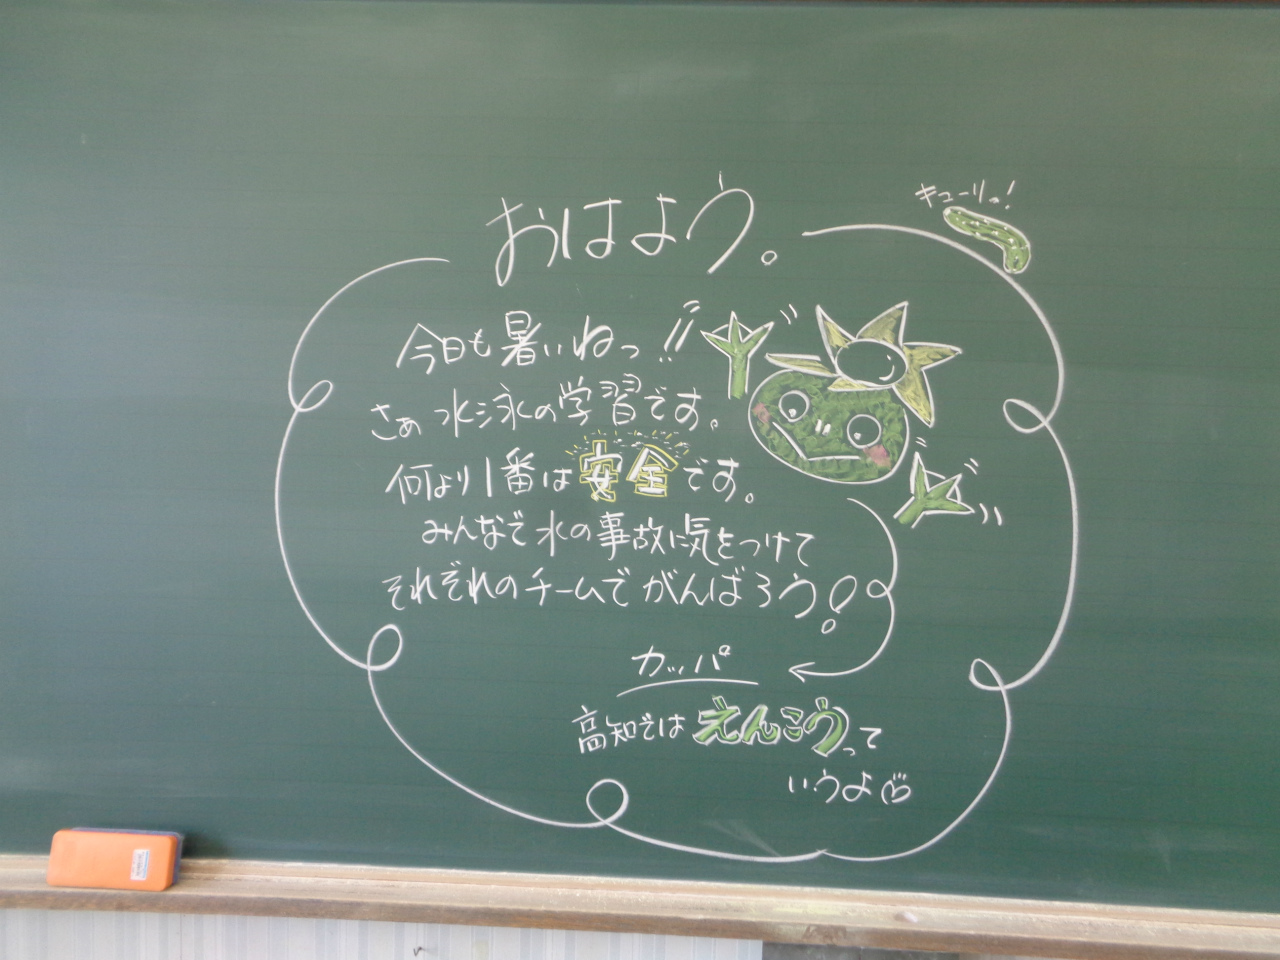 おはよう。
キューリッ!
今日も暑いねっ!!
さぁ 水泳の学習です。
何より1番は安全です。
みんなで水の事故に気をつけて
それぞれのチームでがんばろう!
カッパ
高知ではえんこうって
いうよ